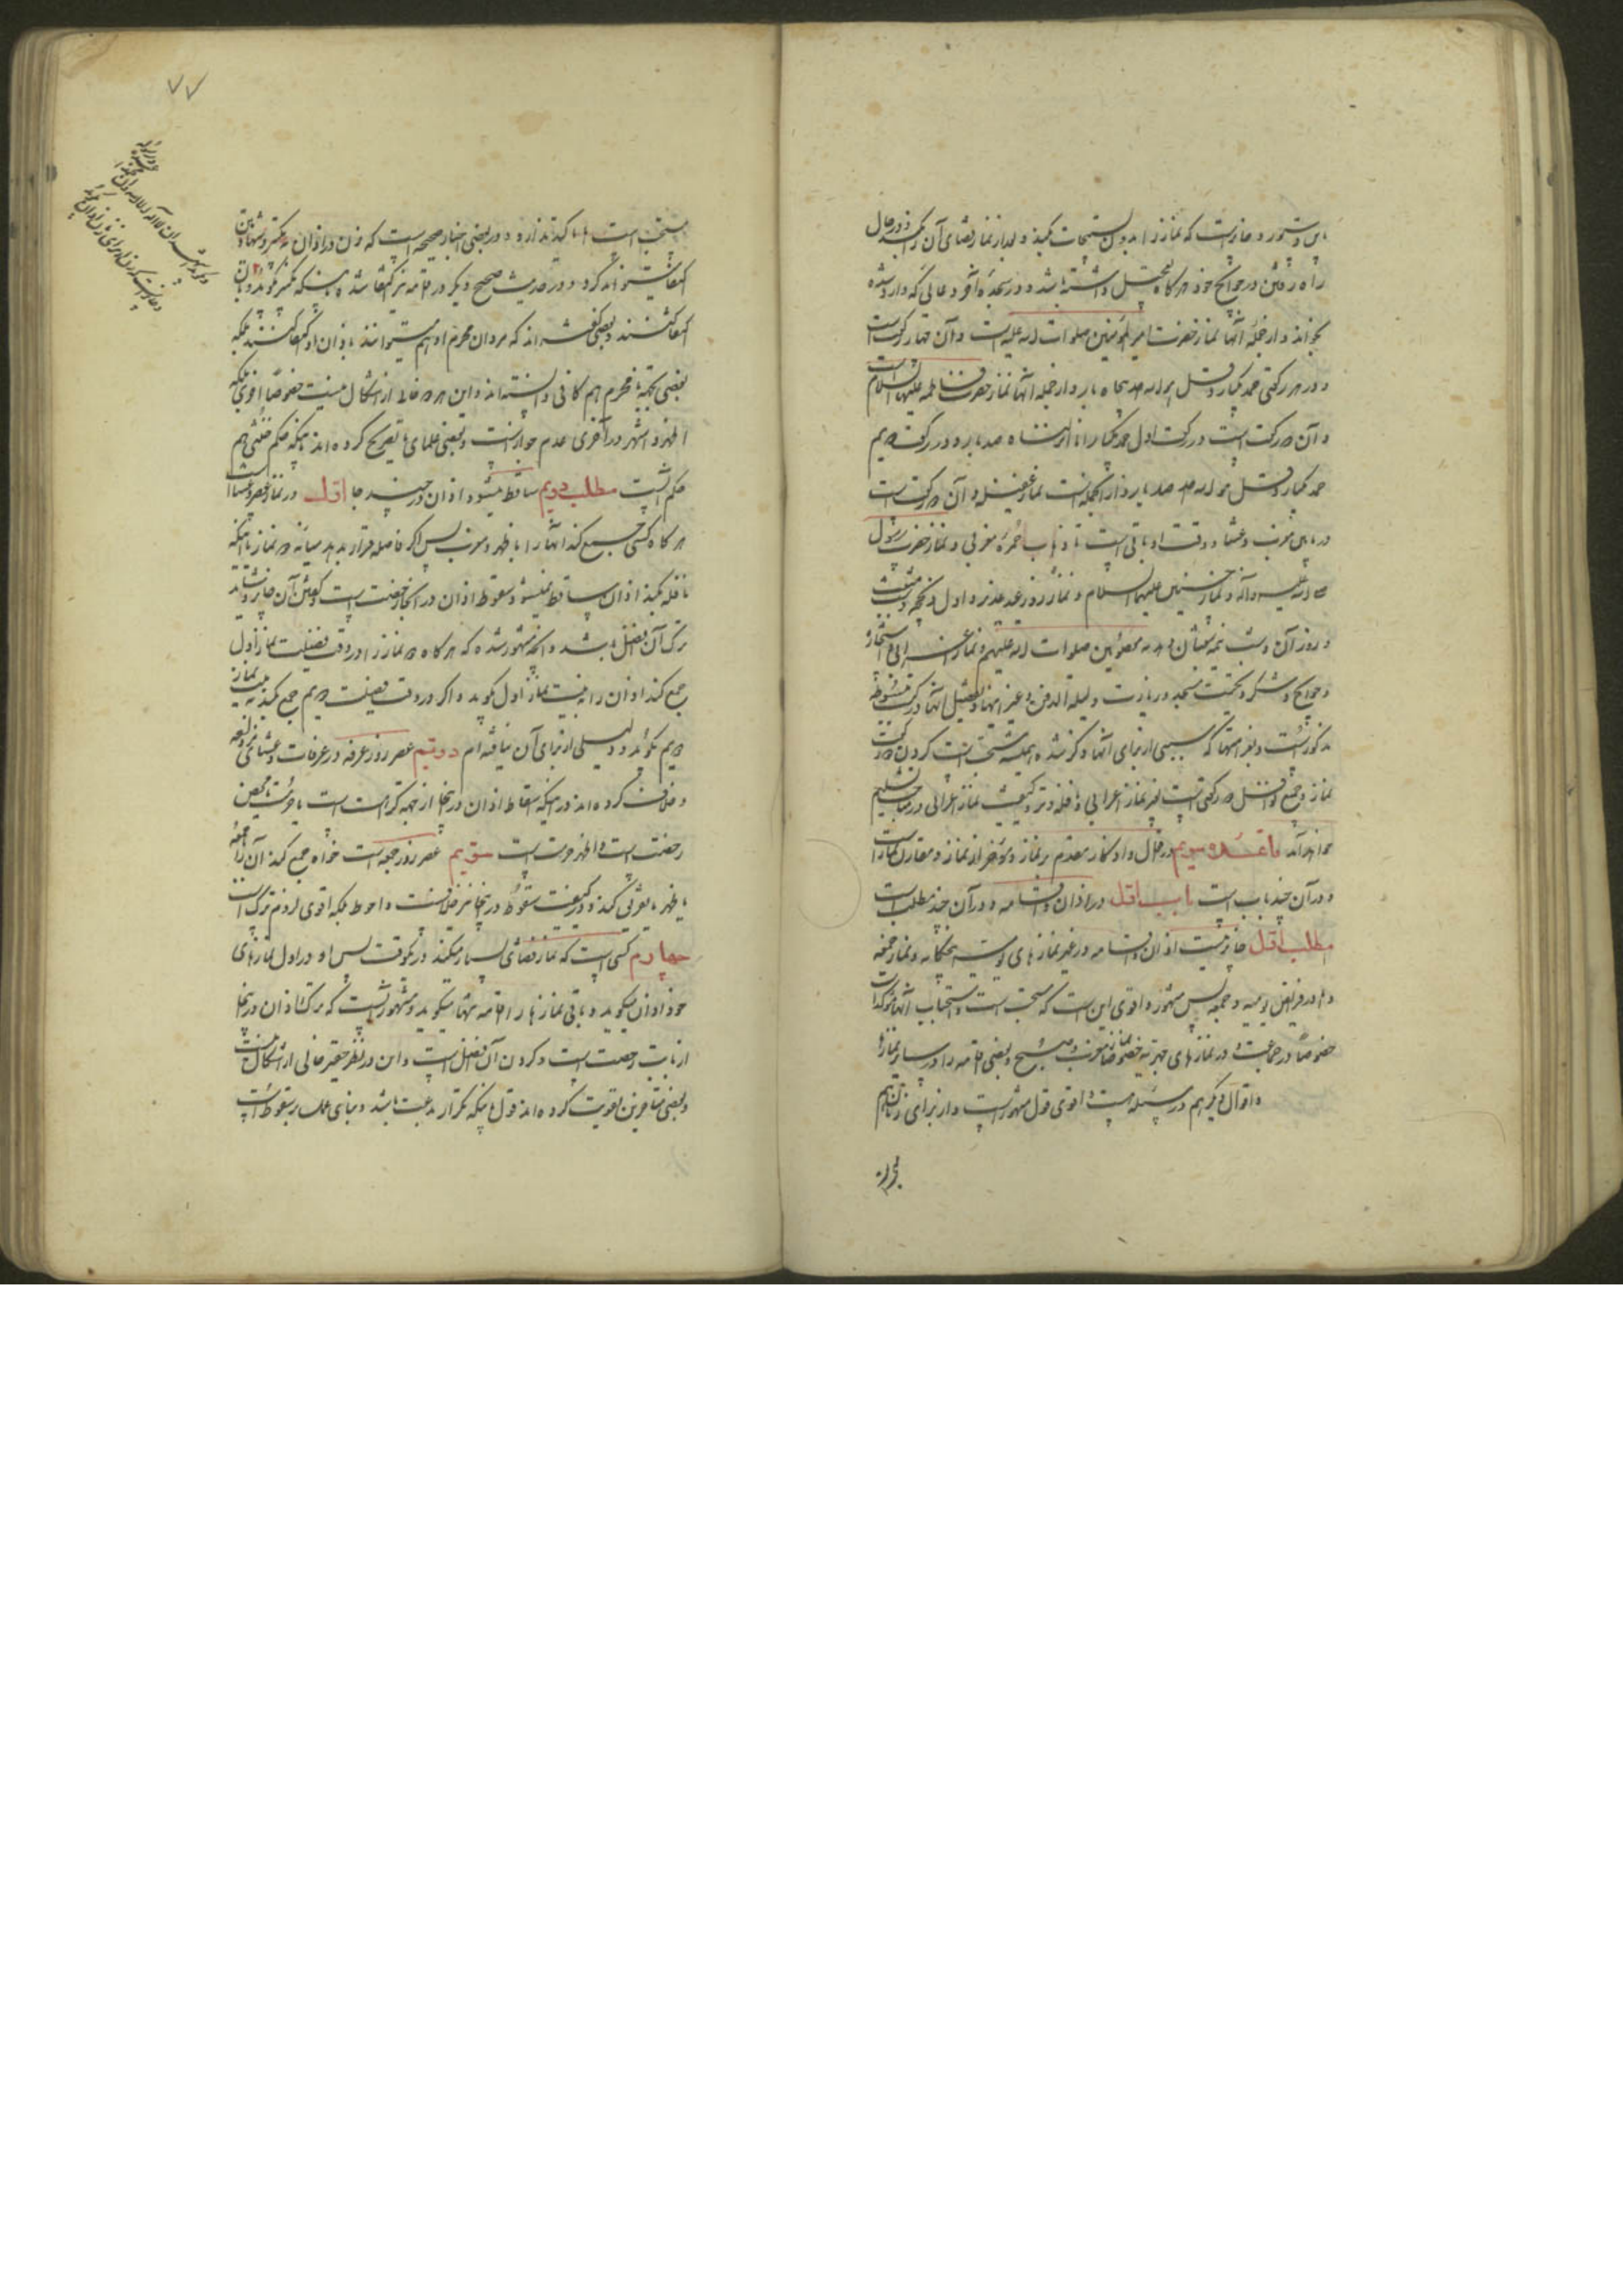 باین دستور و جایز است که نماز را بدون تسبیحات بکند و بعد از نماز قضای آن کند در حال
راه رفتن در حوایج خود هر گاه تعجیل داشته باشد و در سجدهٔ آخر دعائی که وارد شده
بخواند و از جملهٔ آنها نماز حضرت امیر المؤمنین صلوات الله علیه است و آن چهار رکعت است
و در هر رکعتی حمد یکبار و قل هو الله احد پنجاه بار و از جمله آنها نماز حضرت فاطمه علیها السلام است
و آن دو رکعت است در رکعت اول حمد یکبار و انا انزلناه صد بار و در رکعت دویم
حمد یکبار و قل هو الله احد صد بار و از آنجمله است نماز غفیله و آن دو رکعت است
در مابین مغرب و عشا و وقت او باقی است تا ذهاب حمره مغربی و نماز حضرت رسول
صلی الله علیه و آله و نماز حسنین علیهما السلام و نماز روز عید غدیر و اول ذیحجه و شب مبعث
و روز آن و شب نیمه شعبان و ائمه معصومین صلوات الله علیهم و نماز اعرابی و استخاره
و حوایج و شکر و تحیت مسجد و زیارت و لیلة الدفن و غیر اینها و تفصیل آنها در کتب مبسوطه
مذکور است و بغیر اینها که سببی از برای آنها ذکر نشده همیشه مستحب است کردن دو رکعت
نماز و جمیع نوافل دو رکعتی است بغیر نماز اعرابی و نافله وتر و کیفیت نماز اعرابی در مبحث تسلیم
خواهد آمد قاعده سویم در افعال و اذکار مقدم بر نماز و مؤخر از نماز و مقارن نماز است
و در آن چند باب است باب اول در اذان و اقامه و در آن چند مطلب است
مطلب اول جایز نیست اذان و اقامه در غیر نمازهای یومیه پنجگانه و نماز جمعه
و اما در فرایض یومیه و جمعه پس مشهور و اقوی این است که مستحب است و استحباب آنها مؤکد است
خصوصاً در جماعت و در نمازهای جهریه خصوصاً نماز مغرب و صبح و بعضی اقامه را در سایر نمازها
و اقوال دیگر هم در مسئله هست و اقوی قول مشهور است و از برای زنان هم
۷۷
مستحب است اما تاکید ندارد و در بعضی اخبار صحیحه است که زن در اذان به تکبیر و شهادتین
اکتفا میتواند کرد و در حدیث صحیح دیگر در اقامه نیز اکتفا شده باینکه تکبیر گوید و شهادتین
اکتفا کنند و بعضی گفته اند که مردان محرم او هم میتوانند باذان او اکتفا کنند بلکه
بعضی بجهة نامحرم هم کافی دانسته اند و این هر دو خالی از اشکال نیست خصوصاً اخیر بلکه
اظهر و اشهر در آخری عدم جواز است و بعضی علمای ما تصریح کرده اند باینکه حکم خنثی هم
حکم انثی است مطلب دویم ساقط میشود اذان در چند جا اول در نماز عصر و عشا است
هر گاه کسی جمع کند آنها را با ظهر و مغرب پس اگر فاصله قرار بدهد میانه دو نماز باینکه
نافله بکند اذان ساقط نمیشود و سقوط اذان در اینجا رخصت است و گفتن آن جایز و شاید
ترک آن افضل باشد و آنچه مشهور شده که هر گاه دو نماز را در وقت فضیلت نماز اول
جمع کند اذان را به نیت نماز اول گوید و اگر در وقت فضیلت دویم جمع کند به نیت نماز
دویم گوید و دلیلی از برای آن نیافته ام دویم عصر روز عرفه در عرفات و عشای مزدلفه
و خلاف کرده اند در اینکه اسقاط اذان در اینجا از جهة کراهت است یا حرمت یا محض
رخصت است و اظهر حرمت است سویم عصر روز جمعه است خواه جمع کند آن را با جمعه
یا ظهر یا تفریق کند و در کیفیت سقوط در اینجا نیز خلافست و احوط بلکه اقوی لزوم ترک است
چهارم کسی است که نماز قضای بسیار میکند در یکوقت پس او در اول نمازهای
خود اذان میگوید و باقی نمازها را اقامه تنها میگوید و مشهور آنست که ترک اذان در اینجا
از بابت رخصت است و کردن آن افضل است و این در نظر حقیر خالی از اشکال نیست
و بعضی متأخرین تقویت کرده اند قول باینکه تکرار بدعت باشد و بنای عمل بر سقوط است